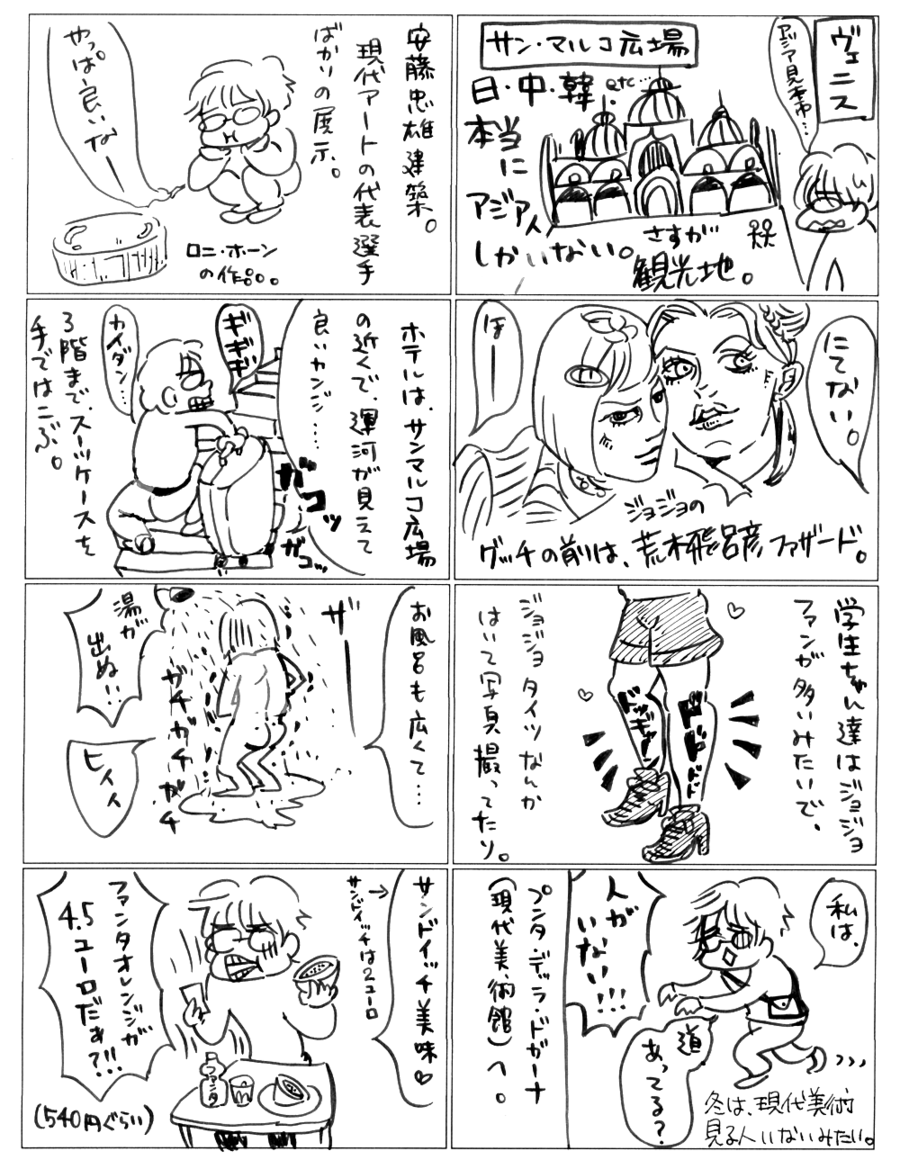 ヴェニス
アジア見本市…
サン・マルコ広場
日・中・韓・etc…
本当に
アジア人
しかいない。
さすが
観光地。
にてない。
ほーー
ジョジョの
グッチの前は、荒木飛呂彦ファザード。
学生ちゃん達はジョジョ
ファンが多いみたいで、
ジョジョタイツなんか
はいて写真撮ってたり。
ドドドドド
ドッギャーン
私は、
人が
いない!!!
道
あってる?
プンタ・デッラ・ドガーナ
(現代美術館)へ。
冬は、現代美術
見る人いないみたい。
安藤忠雄建築。
現代アートの代表選手
ばかりの展示。
やっぱ良いなー
ロニ・ホーン
の作品。
ホテルは、サンマルコ広場
の近くで、運河が見えて
良いカンジ……
ギギギ
カイダン…
ガコッ
ガコッ
3階まで、スーツケースを
手ではこぶ。
お風呂も広くて…
ザーー
湯が
出ぬ!!
ガチガチガチ
ヒィィ
サンドイッチ美味♡
→サンドイッチは2ユーロ
ファンタオレンジが
4.5ユーロだぁ?!!
ファンタ
(540円ぐらい)